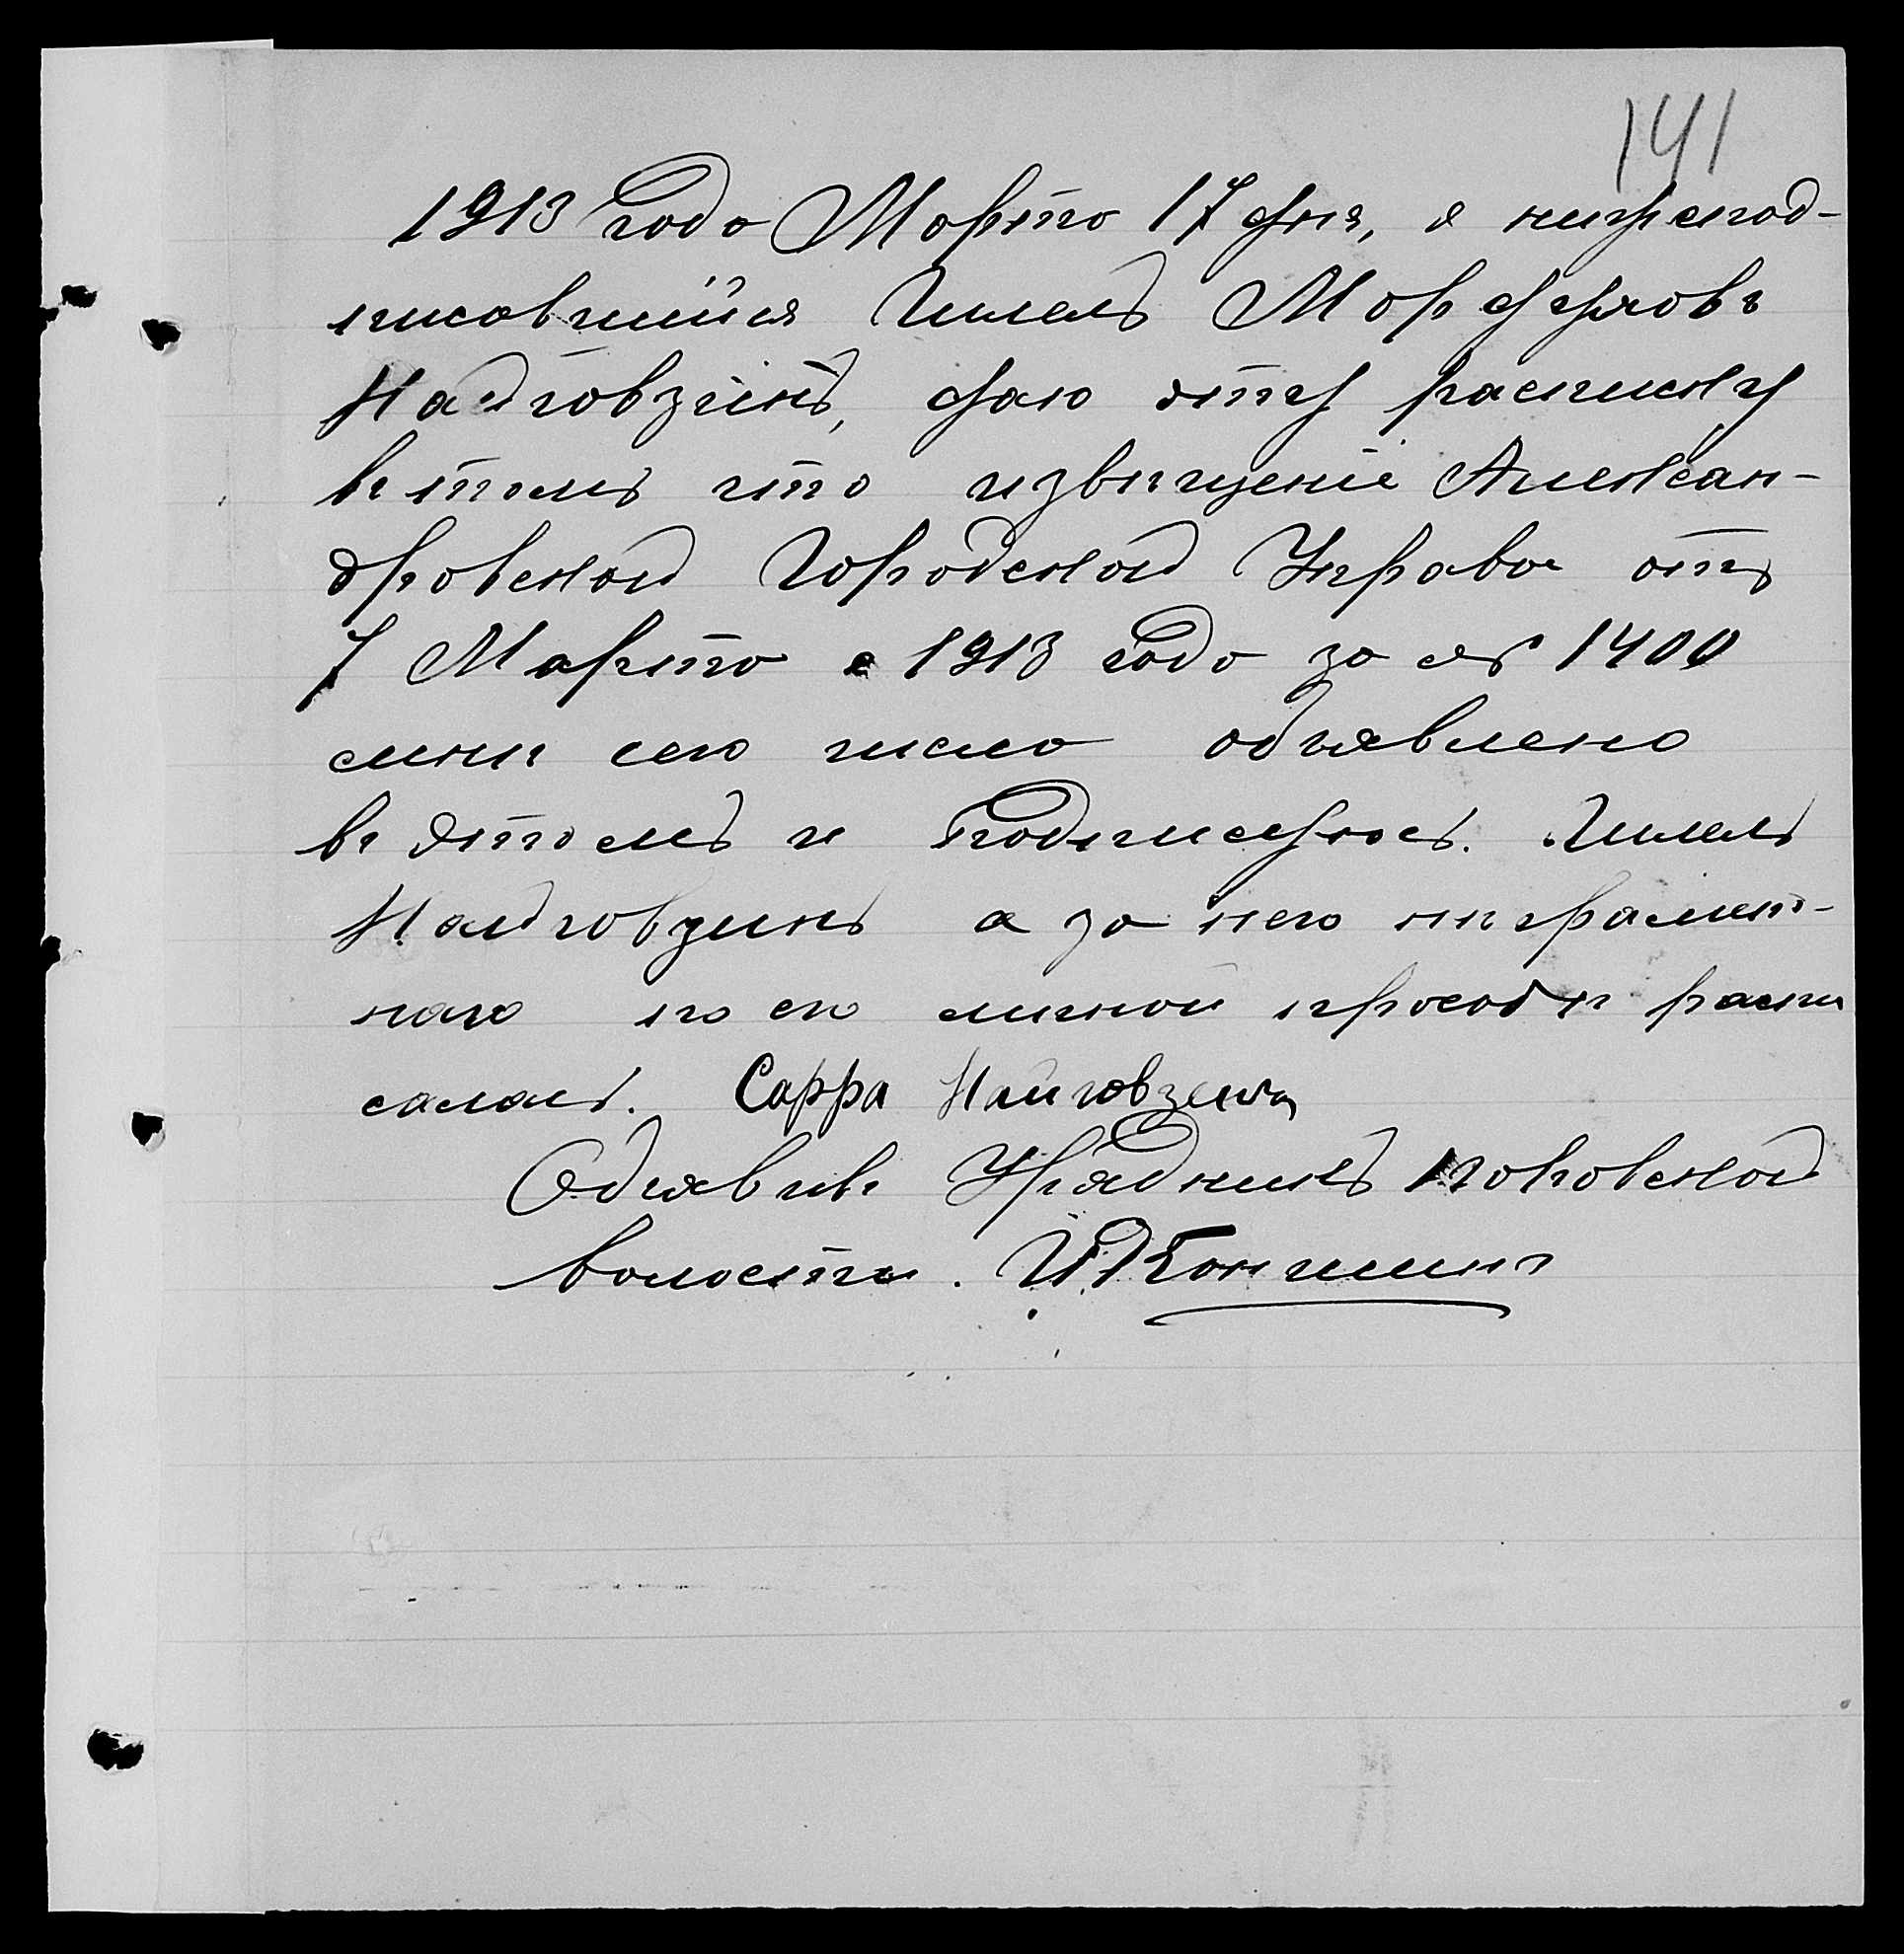 141
1913 года Марта 17 дня, я нижепод-
писавшійся Гилель Мордуховъ
Найговзинъ, даю эту расписку
въ томъ что извѣщеніе Алексан-
дровской Городской Управы отъ
7 Марта с 1913 года за № 1400
мнѣ сего число объявлено
въ этомъ и подписуюсь. Гилель
Найговзинъ а за него неграмот-
наго по его личной просьбѣ распи
салась. Сарра Найговзенъ
Объявивъ Урядникъ Поповской
волости. И. Коншинъ